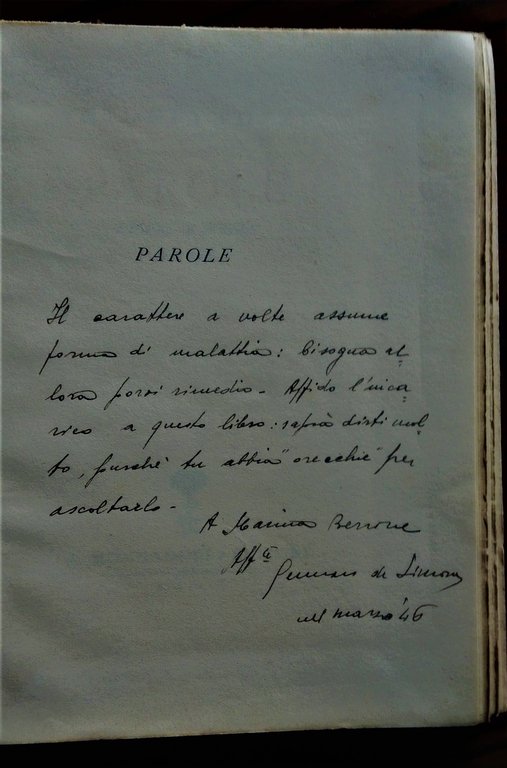 PAROLE
Il carattere a volte assume
forma di malattia: bisogna al-
lora porvi rimedio. Affido l'inca-
rico a questo libro: saprà dirti mol-
to, purché tu abbia "orecchie" per
ascoltarlo.
A Marina Berrone
Aff.te
Gennaro de Simone
nel marzo '46